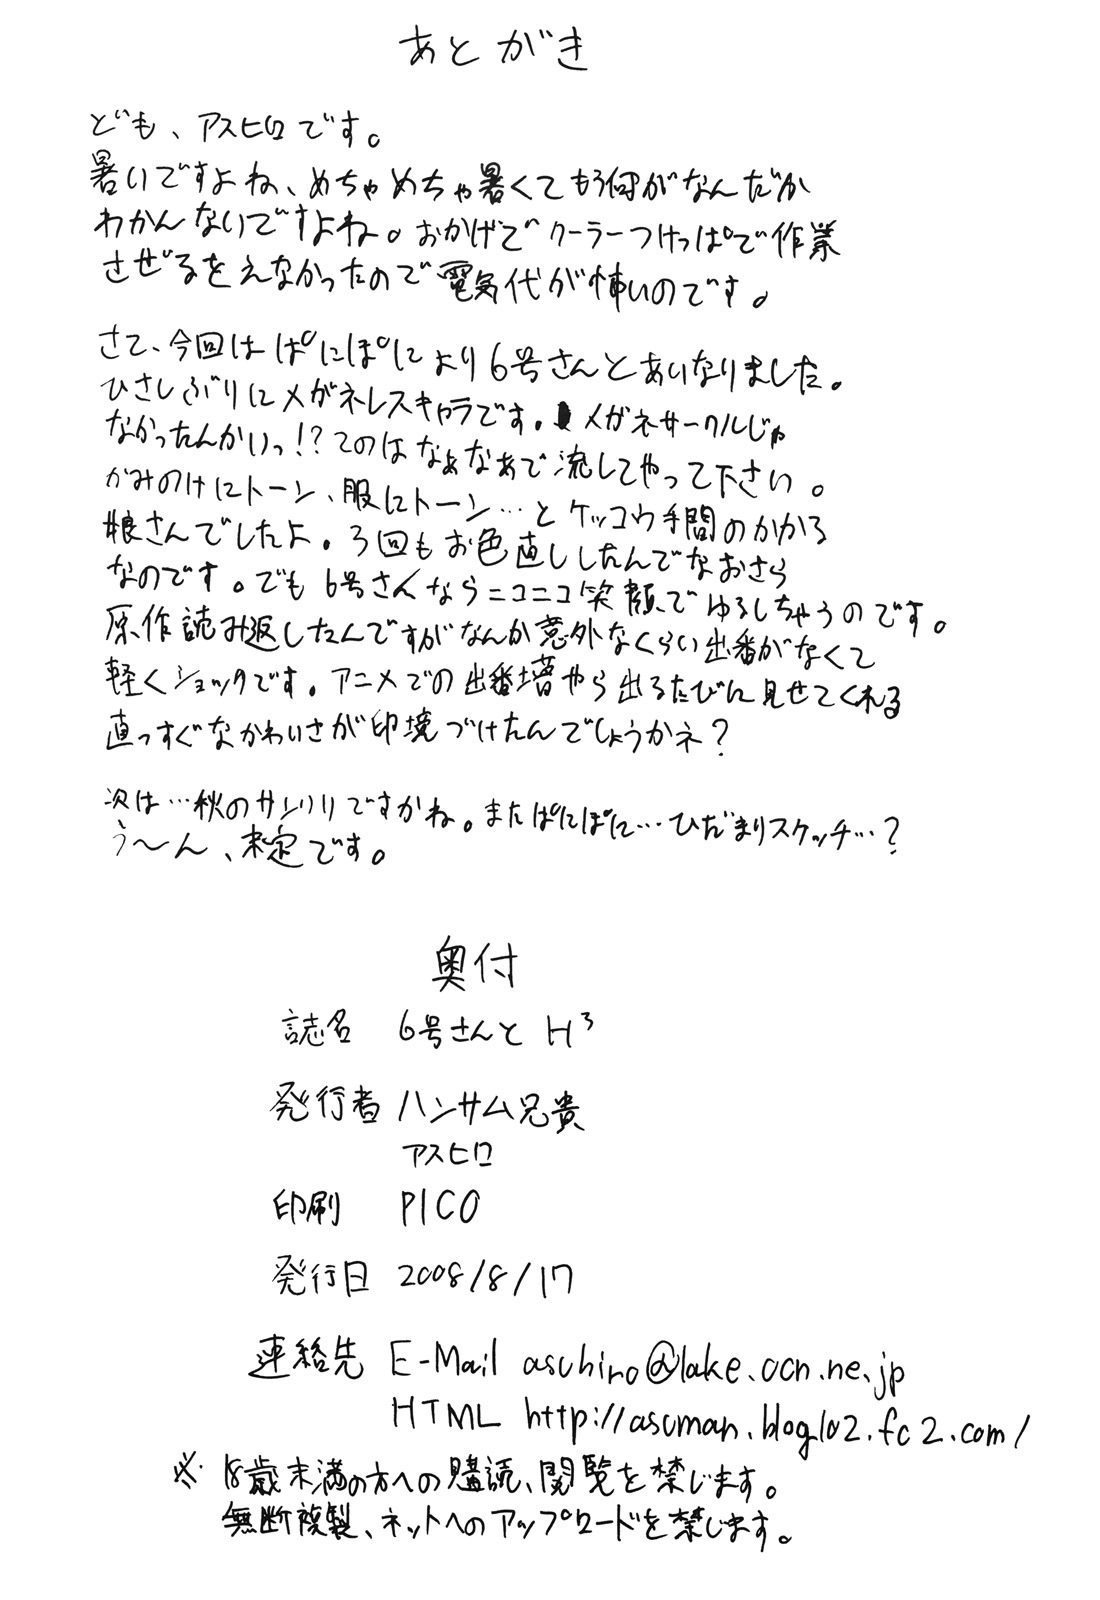 あとがき
ども、アスヒロです。
暑いですよね、めちゃめちゃ暑くてもう何がなんだか
わかんないですよね。おかげでクーラーつけっぱで作業
させるをえなかったので電気代が怖いのです。
さて、今回はぱにぽにより6号さんとあいなりました。
ひさしぶりにメガネレスキャラです。メガネサークルじゃ
なかったんかいっ!?てのはなぁなぁで流してやって下さい。
かみのけにトーン、服にトーン…とケッコウ手間のかかる
娘さんでしたよ。3回もお色直ししたんでなおさら
なのです。でも6号さんならニコニコ笑顔でゆるしちゃうのです。
原作読み返したんですがなんか意外なくらい出番がなくて
軽くショックです。アニメでの出番増やら出るたびに見せてくれる
直っすぐなかわいさが印境づけたんでしょうかネ?
次は…秋のサンクリですかね。またぱにぽに…ひだまりスケッチ…?
う〜ん、未定です。
奥付
誌名 6号さんとH³
発行者 ハンサム兄貴
アスヒロ
印刷 PICO
発行日 2008/8/17
連絡先 E-Mail asuhiro@lake.ocn.ne.jp
HTML http://asuman.blog102.fc2.com/
※18歳未満の方への購読、閲覧を禁じます。
無断複製、ネットへのアップロードを禁じます。